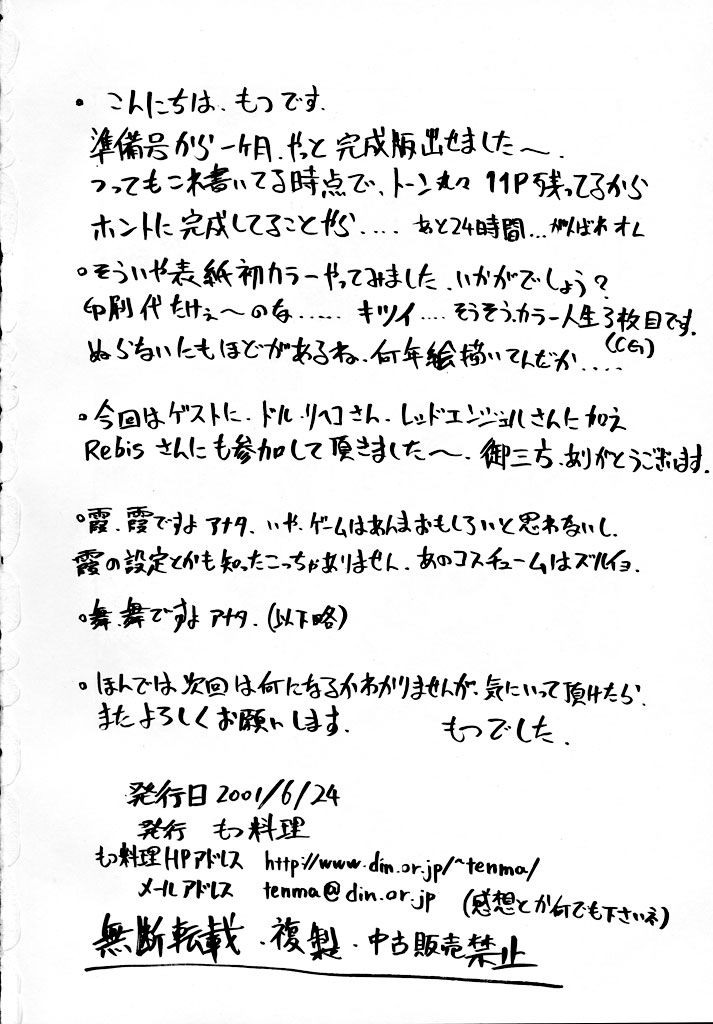 ・こんにちは、もつです.
準備号から一ヶ月、やっと完成版出せました〜.
つってもこれ書いてる時点で、トーン丸々11P残ってるから
ホントに完成してることやら.... あと24時間...がんばれオレ
・そういや表紙初カラーやってみました.いかがでしょう?
印刷代たけぇ〜のな...... キツイ.... そうそう、カラー人生3枚目です.
(CG)
ぬらないにもほどがあるね.何年絵描いてんだか....
・今回はゲストに、ドル・リヘコさん、レッドエンジェルさんに加え
Rebisさんにも参加して頂きました〜.御三方、ありがとうございます.
・霞、霞ですよアナタ.いや、ゲームはあんまおもしろいと思わないし、
霞の設定とかも知ったこっちゃありません.あのコスチュームはズルイョ.
・舞、舞ですよアナタ.(以下略)
・ほんでは次回は何になるかわかりませんが、気にいって頂けたら、
またよろしくお願いします. もつでした.
発行日2001/6/24
発行 もつ料理
もつ料理HPアドレス http://www.din.or.jp/~tenma/
メールアドレス tenma@din.or.jp (感想とか何でも下さいネ)
無断転載・複製・中古販売禁止